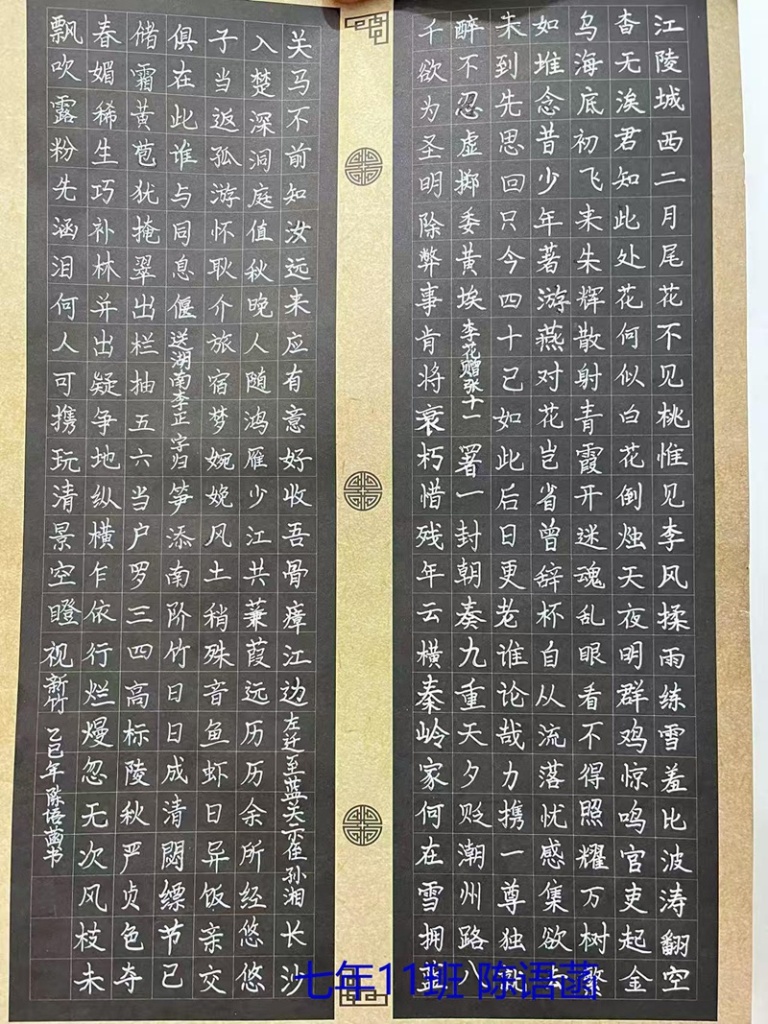 江陵城西二月尾花不见桃惟见李风揉雨练雪羞比波涛翻空
杳无涘君知此处花何似白花倒烛天夜明群鸡惊鸣官吏起金
乌海底初飞来朱辉散射青霞开迷魂乱眼看不得照耀万树繁
如堆念昔少年著游燕对花岂省曾辞杯自从流落忧感集欲去
未到先思回只今四十已如此后日更老谁论哉力携一尊独就
醉不忍虚掷委黄埃李花赠张十一署一封朝奏九重天夕贬潮州路八
千欲为圣明除弊事肯将衰朽惜残年云横秦岭家何在雪拥蓝
关马不前知汝远来应有意好收吾骨瘴江边左迁至蓝关示侄孙湘长沙
入楚深洞庭值秋晚人随鸿雁少江共蒹葭远历历余所经悠悠
子当返孤游怀耿介旅宿梦婉娩风土稍殊音鱼虾日异饭亲交
俱在此谁与同息偃送湖南李正字归笋添南阶竹日日成清閟缥节已
储霜黄苞犹掩翠出栏抽五六当户罗三四高标陵秋严贞色夺
春媚稀生巧补林并出疑争地纵横乍依行烂熳忽无次风枝未
飘吹露粉先涵泪何人可携玩清景空瞪视新竹 乙巳年陈语菡书
七年11班 陈语菡